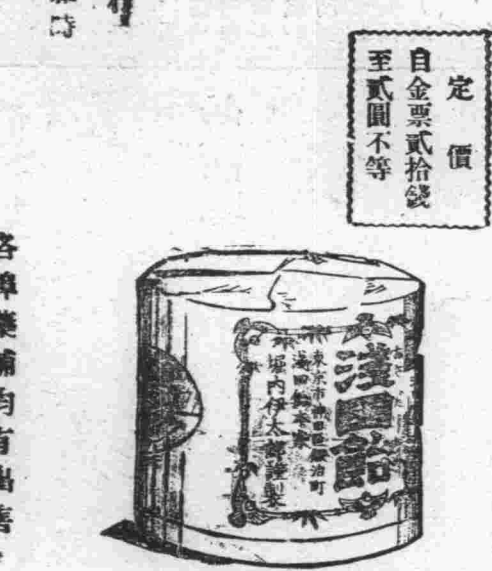 定價
自金票貳拾錢
至貳圓不等
淺田飴
東京市神田區鍛治町
淺田飴本家
堀内伊太郎謹製
各埠藥鋪均有出售
時